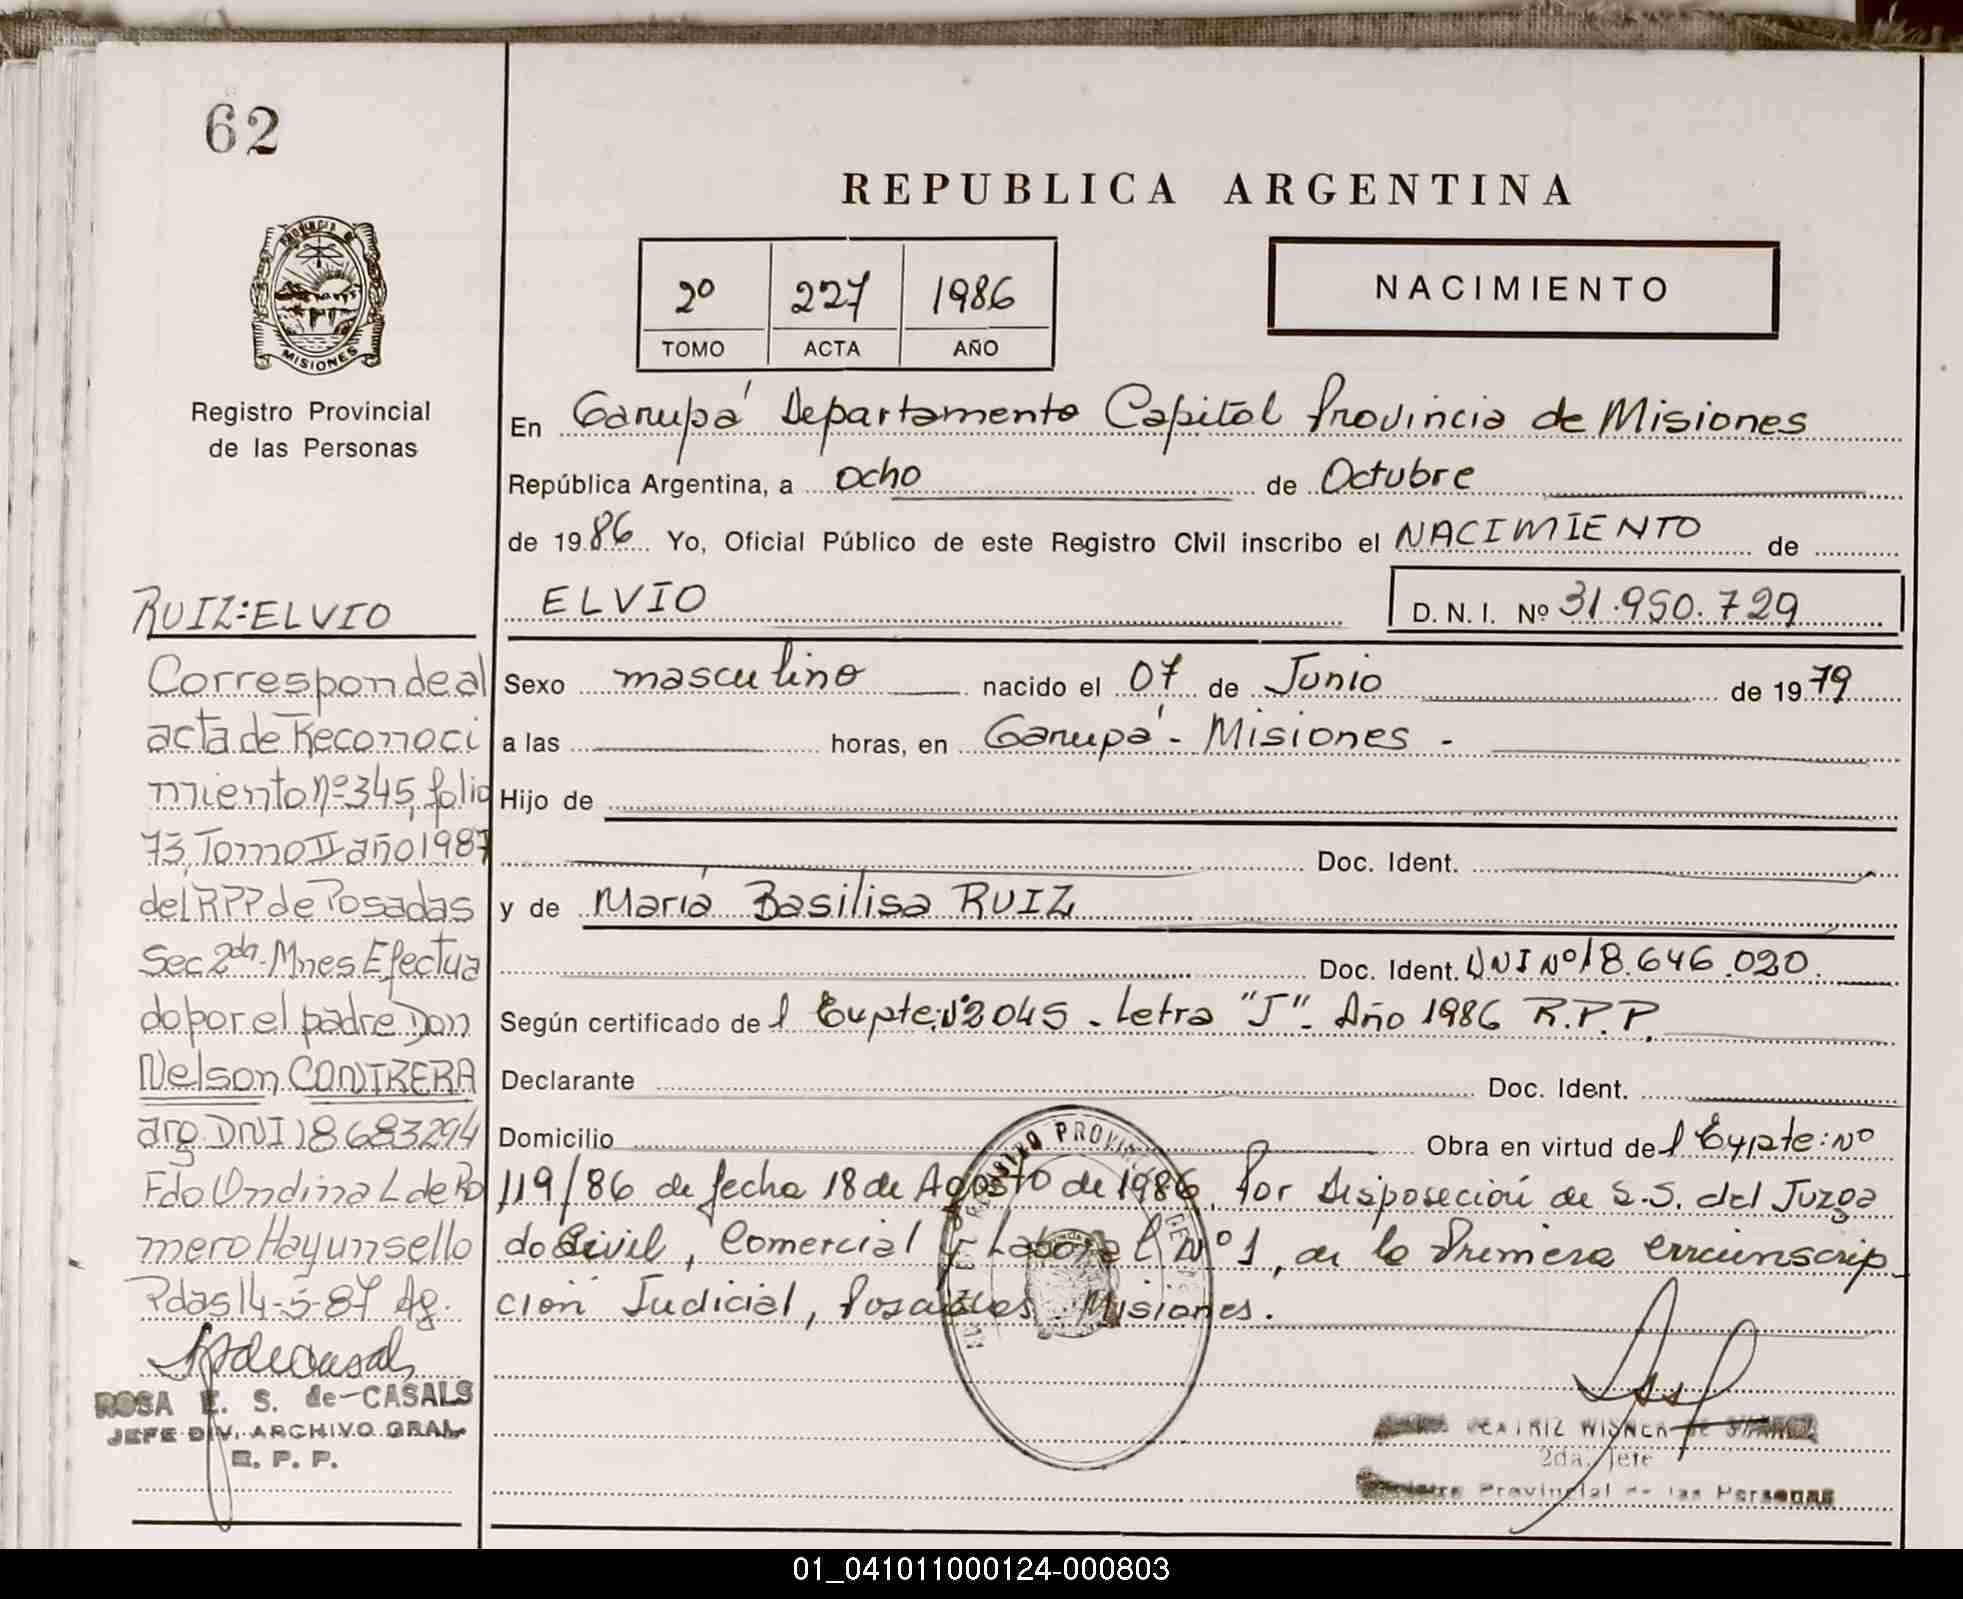 62
REPUBLICA ARGENTINA
PROVINCIA DE
MISIONES
Registro Provincial
de las Personas
2º 227 1986
TOMO ACTA AÑO
NACIMIENTO
En Garupá Departamento Capital Provincia de Misiones
República Argentina, a ocho de Octubre
de 1986 Yo, Oficial Público de este Registro Civil inscribo el NACIMIENTO de
ELVIO D. N. I. Nº 31.950.729
Sexo masculino nacido el 07 de Junio de 1979
a las horas, en Garupá - Misiones -
Hijo de
Doc. Ident.
y de María Basilisa RUIZ
Doc. Ident. DNI Nº 18.646.020.
Según certificado del Expte: Nº 2045 - Letra "J" - Año 1986 R.P.P.
Declarante Doc. Ident.
Domicilio Obra en virtud del Expte: Nº
119/86 de fecha 18 de Agosto de 1986, Por Disposeción de S.S. del Juzga
do Civil, Comercial y Laboral Nº 1, de la Primera circunscrip
ción Judicial, Posadas Misiones.
RUIZ: ELVIO
Corresponde al
acta de Reconoci
miento nº 345, folio
73, Tomo II año 1987
del RPP de Posadas
Sec 2da - Mnes Efectua
do por el padre Don
Nelson CONTRERA
arg. DNI 18683294
Fdo Undina L de Ro
mero Hay un sello
Pdas 14-5-87 Ag.
ROSA E. S. de CASALS
JEFE DIV. ARCHIVO GRAL
R. P. P.
REGISTRO PROVINCIAL DE LAS
BEATRIZ WISNER DE
2da. Jefe
Registro Provincial de las Personas
01_041011000124-000803